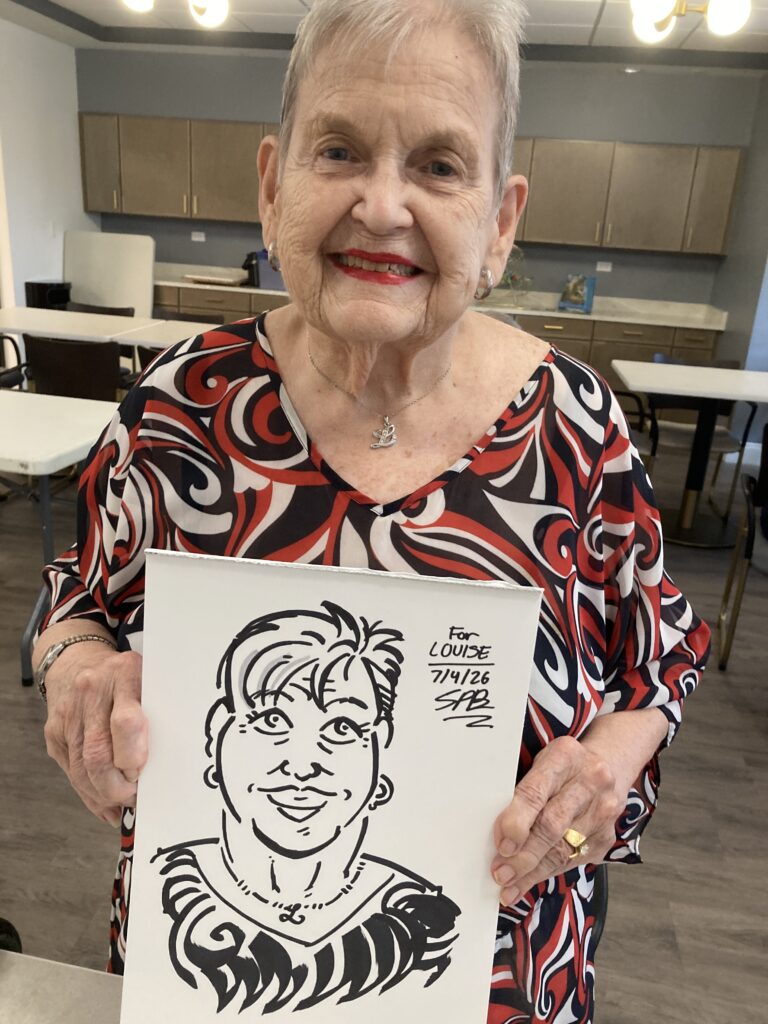 For
LOUISE
7/4/26
SPB
L
L